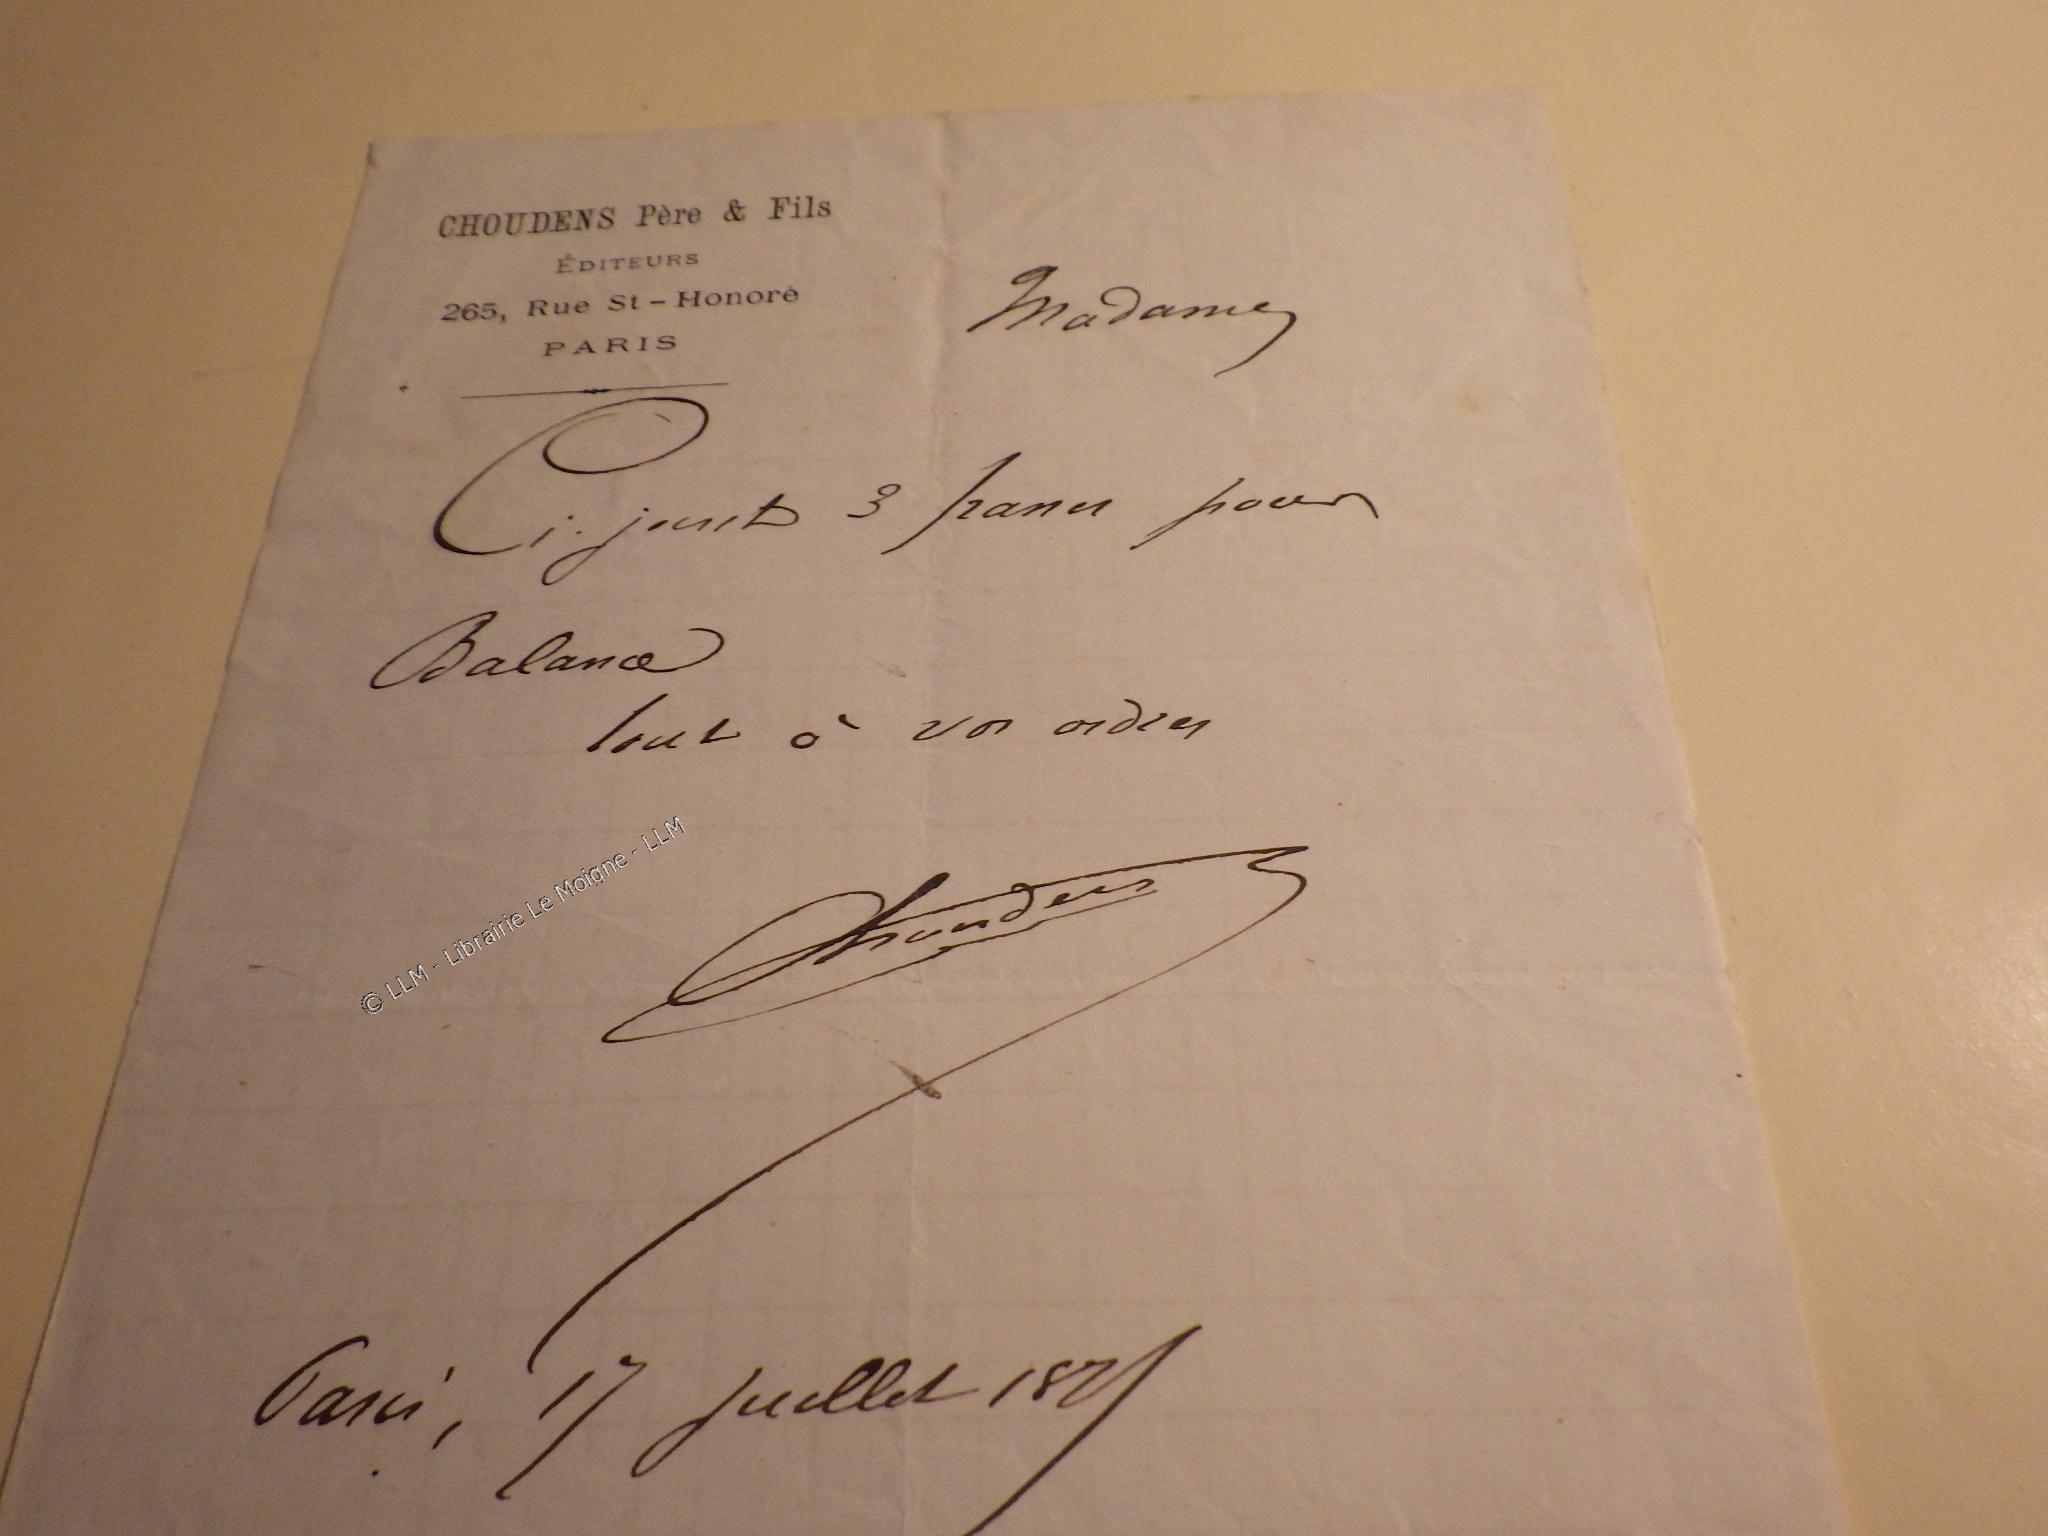 CHOUDENS Père & Fils
ÉDITEURS
265, Rue St-Honoré
PARIS
Madame
Ci-joint 3 francs pour
Balance
tout à vos ordres
Choudens
© LLM - Librairie Le Moigne - LLM
Paris, 17 juillet